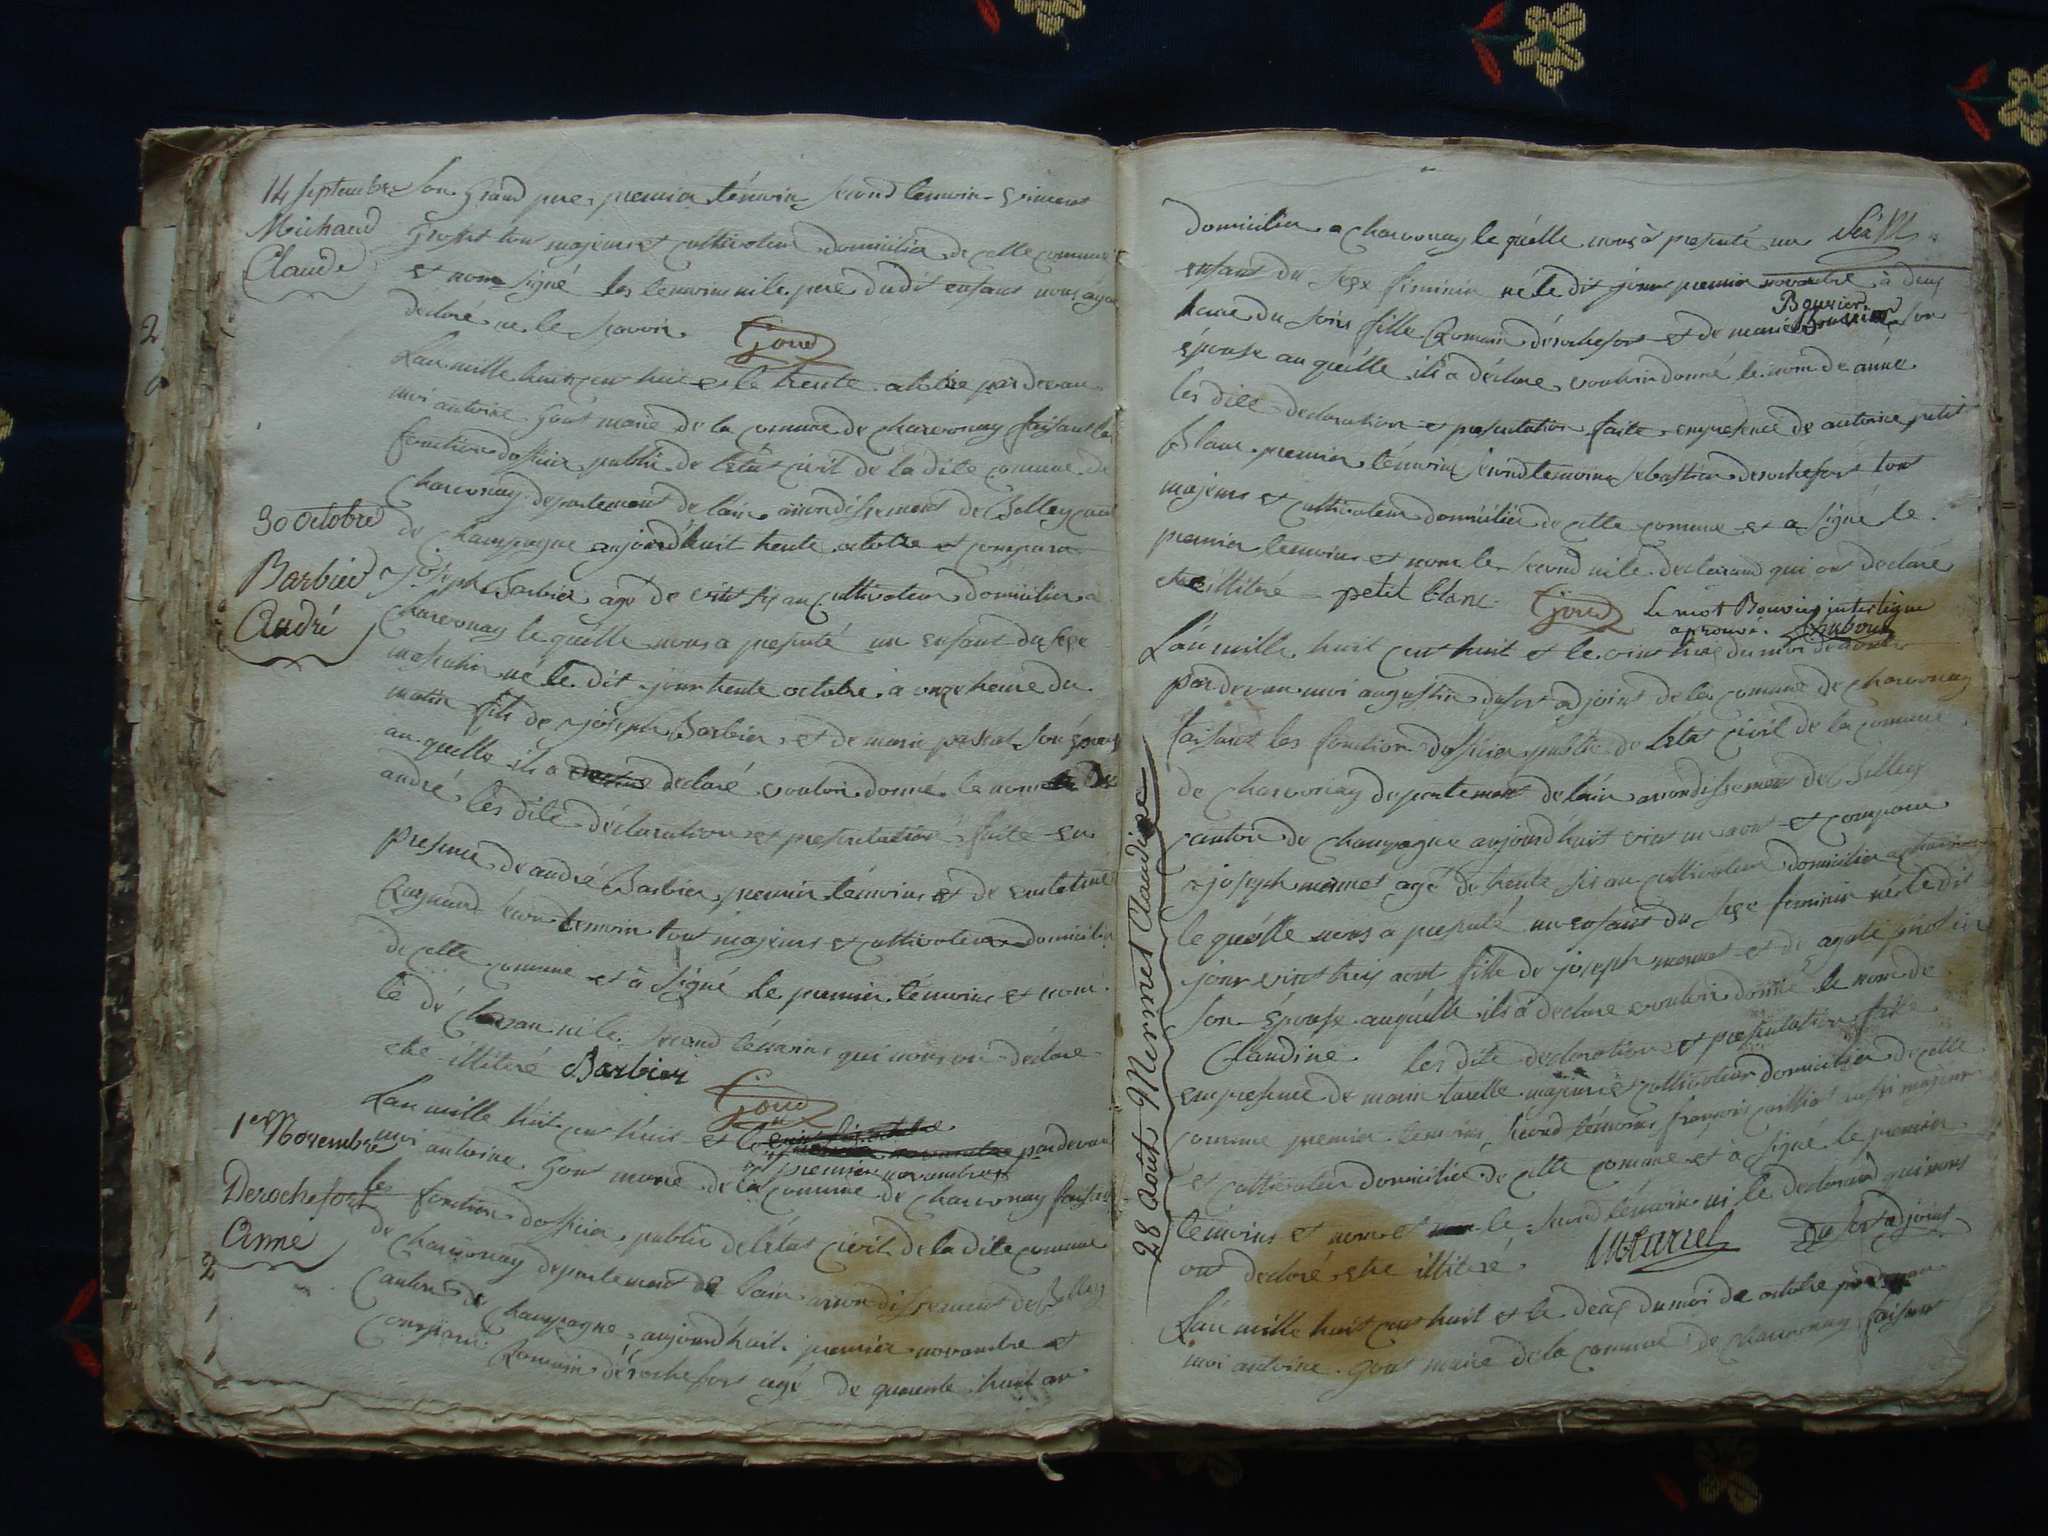 14 septembre
Michaud
Claude
son Grand pere premier témoin second temoin
tout majeurs et cultivateur domicilier de cette commune
et nom signé les temoins ni le pere dudit enfant nous ayan
declaré ne le scavoir Gout
L'an mille huit cent huit et le trente octobre par devan
moi antoine Gout maire de la comune de charvonay faisant les
fonction dofficier public de letat civil de la dite comune de
charvonay departement de lain arrondissement de Belley cant
30 octobre
Barbier
André
de champagne aujourdhuit trente octobre et comparu
joseph Barbier agé de vint six an cultivateur domicilier a
charvonay le quélle nous a presenté un enfant du sexe
masculin né le dit jour trente octobre a onze heure du
matin fils de joseph Barbier et de marie pascal son épouse
au quelle ils a declaré vouloir donné le nom de
andré les dite déclaration et presentation faite en
presence de andré Barbier premier témoins et de
second temoin tout majeurs et cultivateur domicilier
de cette comune et à signé le premier témoins et nom
le déclaran ni le second témoins qui nous ont declaré
etre illiteré Barbier
Gout
1er Novembre
Derochefort
Anne
L'an mille huit cent huit et le
premier novembre par devan
moi antoine Gout maire de la comune de charvonay faisant
les fonction dofficier public de létat civil de la dite comune
de charvonay departement de lain arrondissement de Belley
canton de champagne aujourdhuit premier novembre et
comparu Romain dérochefort agé de quarante huit an
2
2
1
1
domicilier a charvonay le quélle nous à presenté un
enfant du sexe feminin né le dit jour premier novembre à deux
heure du soir fille Romain dérochefort et de marie Bouvier son
épouse au quélle ils a déclaré vouloir donné le nom de anne
les dite declaration et presentation faite en presence de antoine petit
Blanc premier témoins second temoins sebastien derochefort tout
majeurs et cultivateur domicilier de cette comune et a signé le
premier temoins et nom le second ni le declarand qui ont declaré
etre illiteré petit blanc Gout Le mot Bouvier interligne
aprouvé.
28 Août Mermet Claudine
L'an mille huit cent huit et le vint huit du moi de aout
par devan moi augustin dufort adjoint de la comune de charvonay
faisant les fonction dofficier public de létat civil de la comune
de charvonay departement de lain arrondissement de Belley
canton de champagne aujourdhuit vint aout et comparu
joseph mermet agé de trente six an cultivateur domicilier a charvonay
le quélle nous a presenté un enfant du sexe feminin né le dit
jour vint huit aout fille de joseph mermet et de agate
son épouse auquélle ils à declaré vouloir donné le nom de
Claudine les dite declaration et presentation faite
en presence de marin turelle majeurs et cultivateur domicilier de cette
comune premier temoins second témoins françois aussi majeur
et cultivateur domicilier de cette comune et à signé le premier
témoins et nom le second témoins ni le declarand qui nous
ont declaré etre illiteré Dufort adjoint
L'an mille huit cent huit et le deux du moi de octobre par devan
moi antoine Gout maire de la comune de charvonay faisant